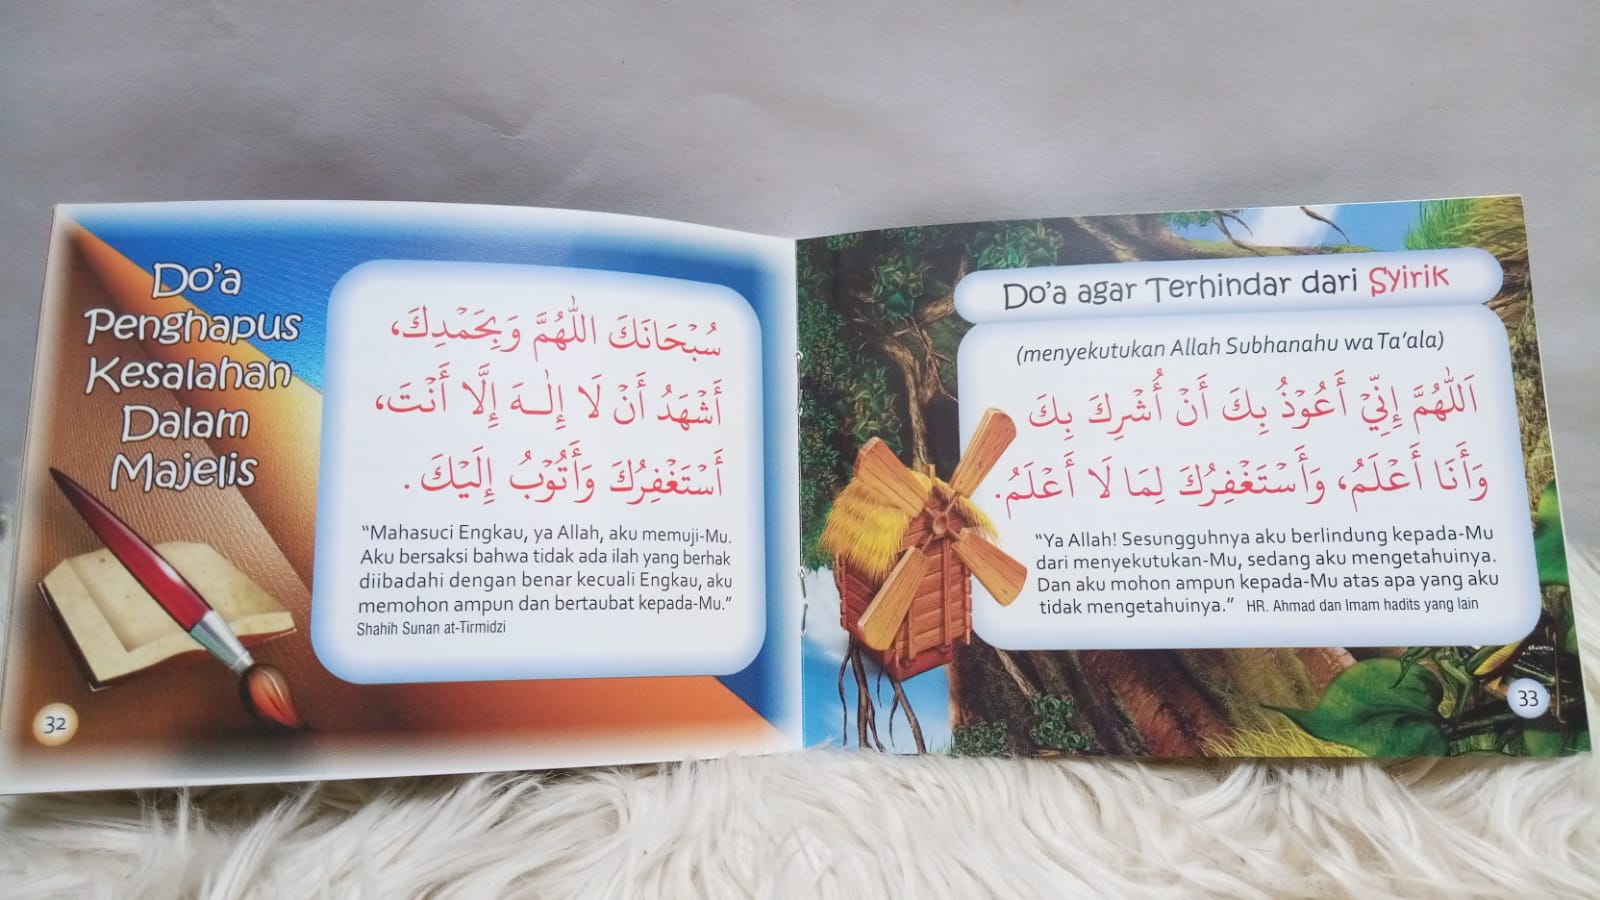 Do'a
Penghapus
Kesalahan
Dalam
Majelis
سُبْحَانَكَ اللّٰهُمَّ وَبِحَمْدِكَ،
أَشْهَدُ أَنْ لَا إِلٰـهَ إِلَّا أَنْتَ،
أَسْتَغْفِرُكَ وَأَتُوْبُ إِلَيْكَ .
“Mahasuci Engkau, ya Allah, aku memuji-Mu.
Aku bersaksi bahwa tidak ada ilah yang berhak
diibadahi dengan benar kecuali Engkau, aku
memohon ampun dan bertaubat kepada-Mu.”
Shahih Sunan at-Tirmidzi
32
Do'a agar Terhindar dari Syirik
(menyekutukan Allah Subhanahu wa Ta'ala)
اَللّٰهُمَّ إِنِّيْ أَعُوْذُ بِكَ أَنْ أُشْرِكَ بِكَ
وَأَنَا أَعْلَمُ، وَأَسْتَغْفِرُكَ لِمَا لَا أَعْلَمُ.
“Ya Allah! Sesungguhnya aku berlindung kepada-Mu
dari menyekutukan-Mu, sedang aku mengetahuinya.
Dan aku mohon ampun kepada-Mu atas apa yang aku
tidak mengetahuinya.” HR. Ahmad dan Imam hadits yang lain
33